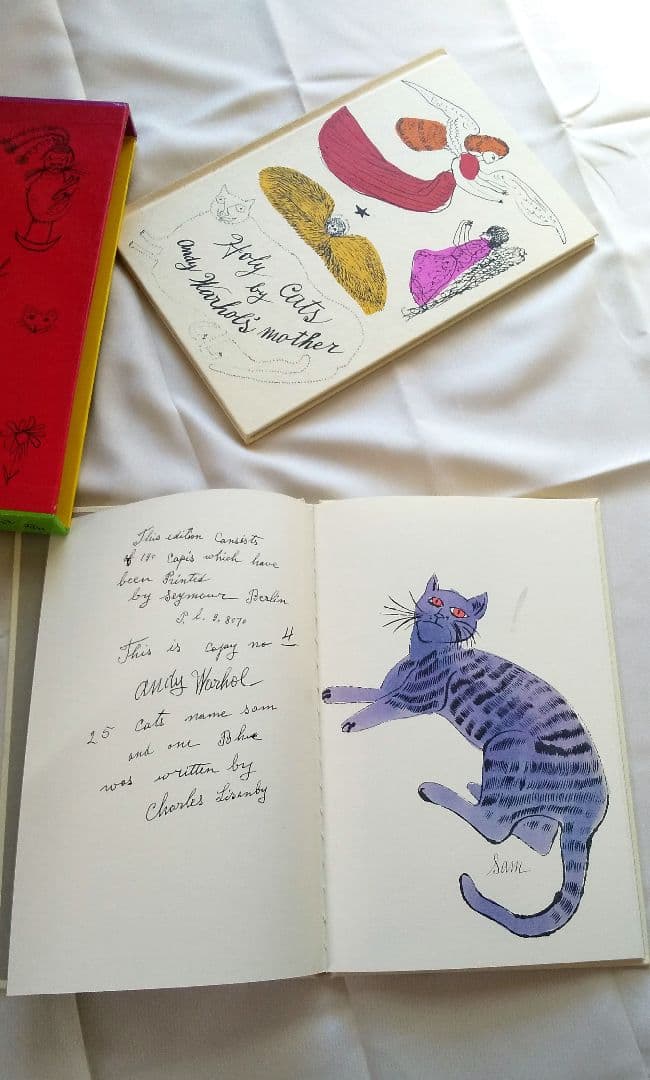 Holy Cats
by
Andy Warhol's mother
This edition Consists
of 190 Copis which have
been Printed
by Seymour Berlin
P. L. 9. 8070
This is copy no 4
Andy Warhol
25 cats name sam
and one Blue
was written by
Charles Lisanby
Sam